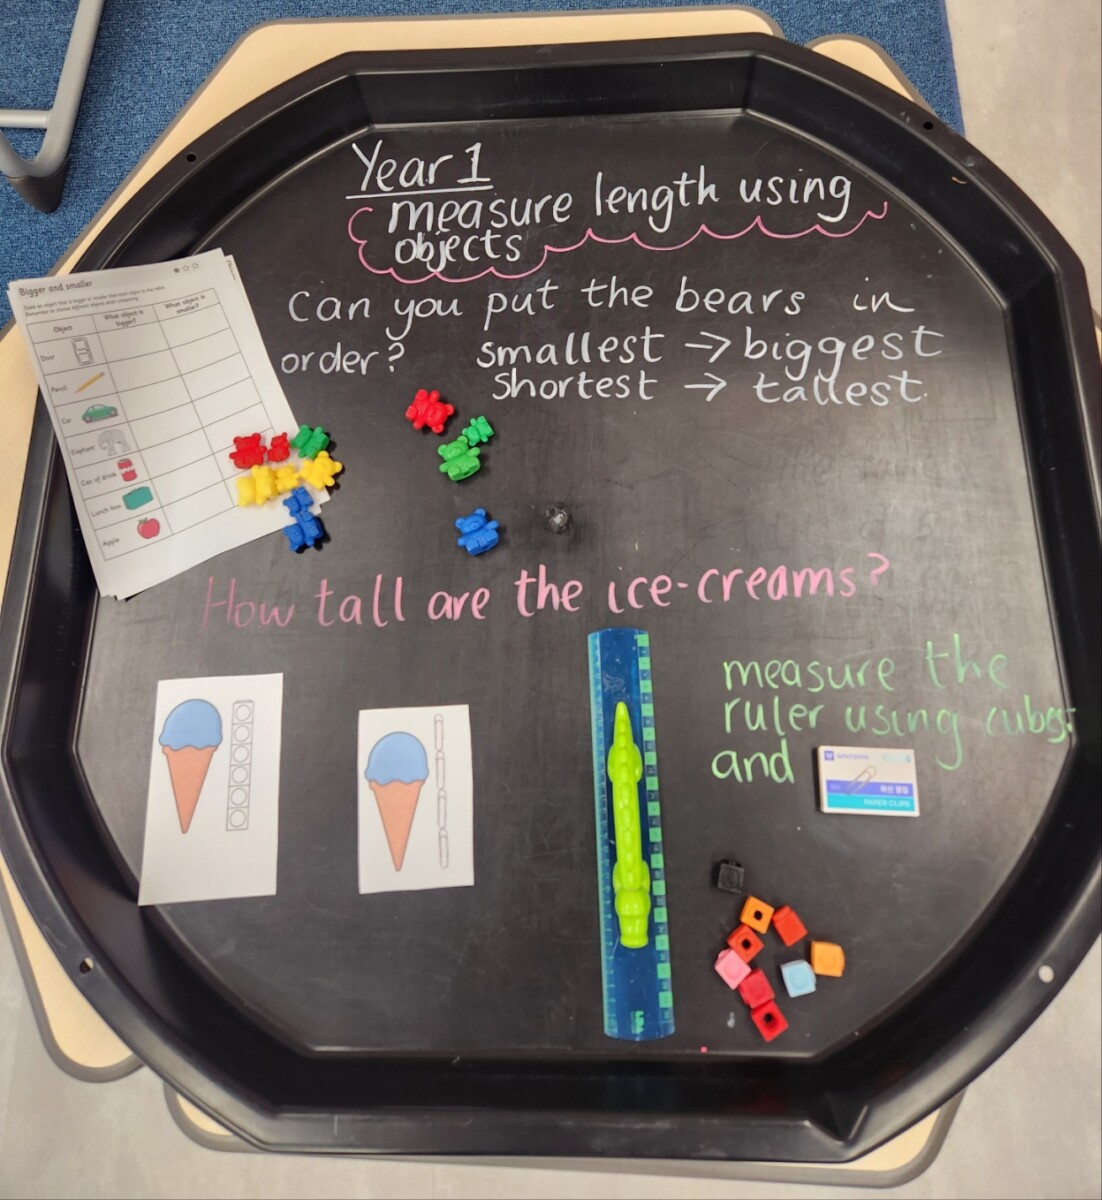 Year 1
measure length using
objects
Can you put the bears in
order? smallest → biggest
shortest → tallest.
Bigger and smaller
Object
What object is bigger?
What object is smaller?
Door
Pencil
Car
Elephant
Can of drink
Lunch box
Apple
How tall are the ice-creams?
measure the
ruler using cubes
and
PAPER CLIPS